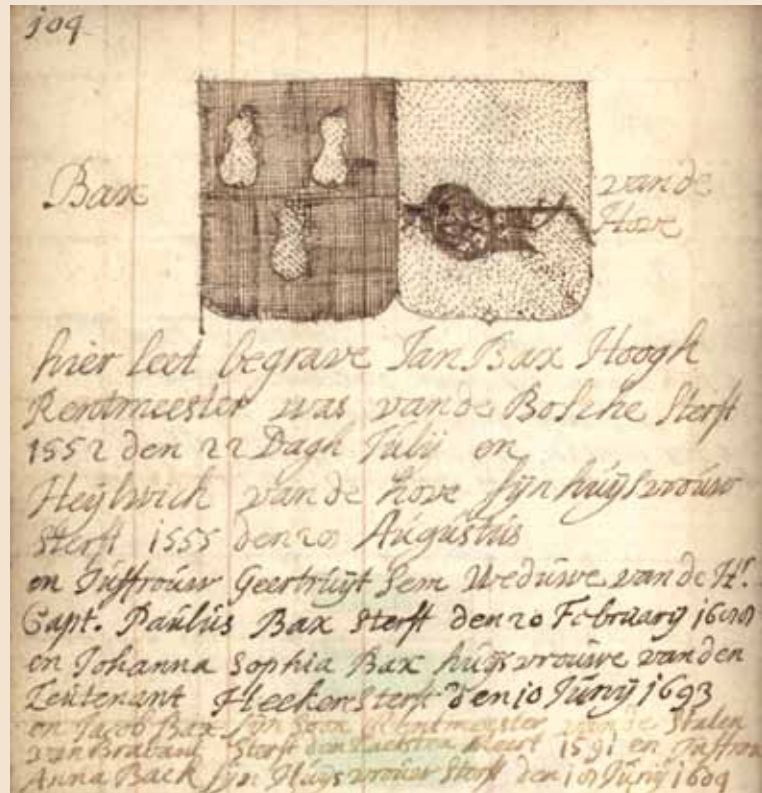 109
Bax
vande
Hove
hier leet begrave Jan Bax Hoogh
Rentmeester was vande Bossche sterft
1552 den 22 Dagh Julij en
Heÿlwich van de hove sÿn huÿsvrouw
sterft 1555 den Augustus
en Juffrouw Geertruÿt Sem Weduwe van de Hr.
Capt. Paulus Bax sterft den 20 February
en Johanna Sophia Bax huÿsvrouwe van den
Leutenant Heeker sterft den 10 Junÿ 1693
en Jacob Bax sÿn Soon Rentmeester van de Staten
van Brabant sterft den Laetsten Meert 1591 en Juffrou
Anna Back sÿn Huÿsvrouw sterft den Junÿ 1609